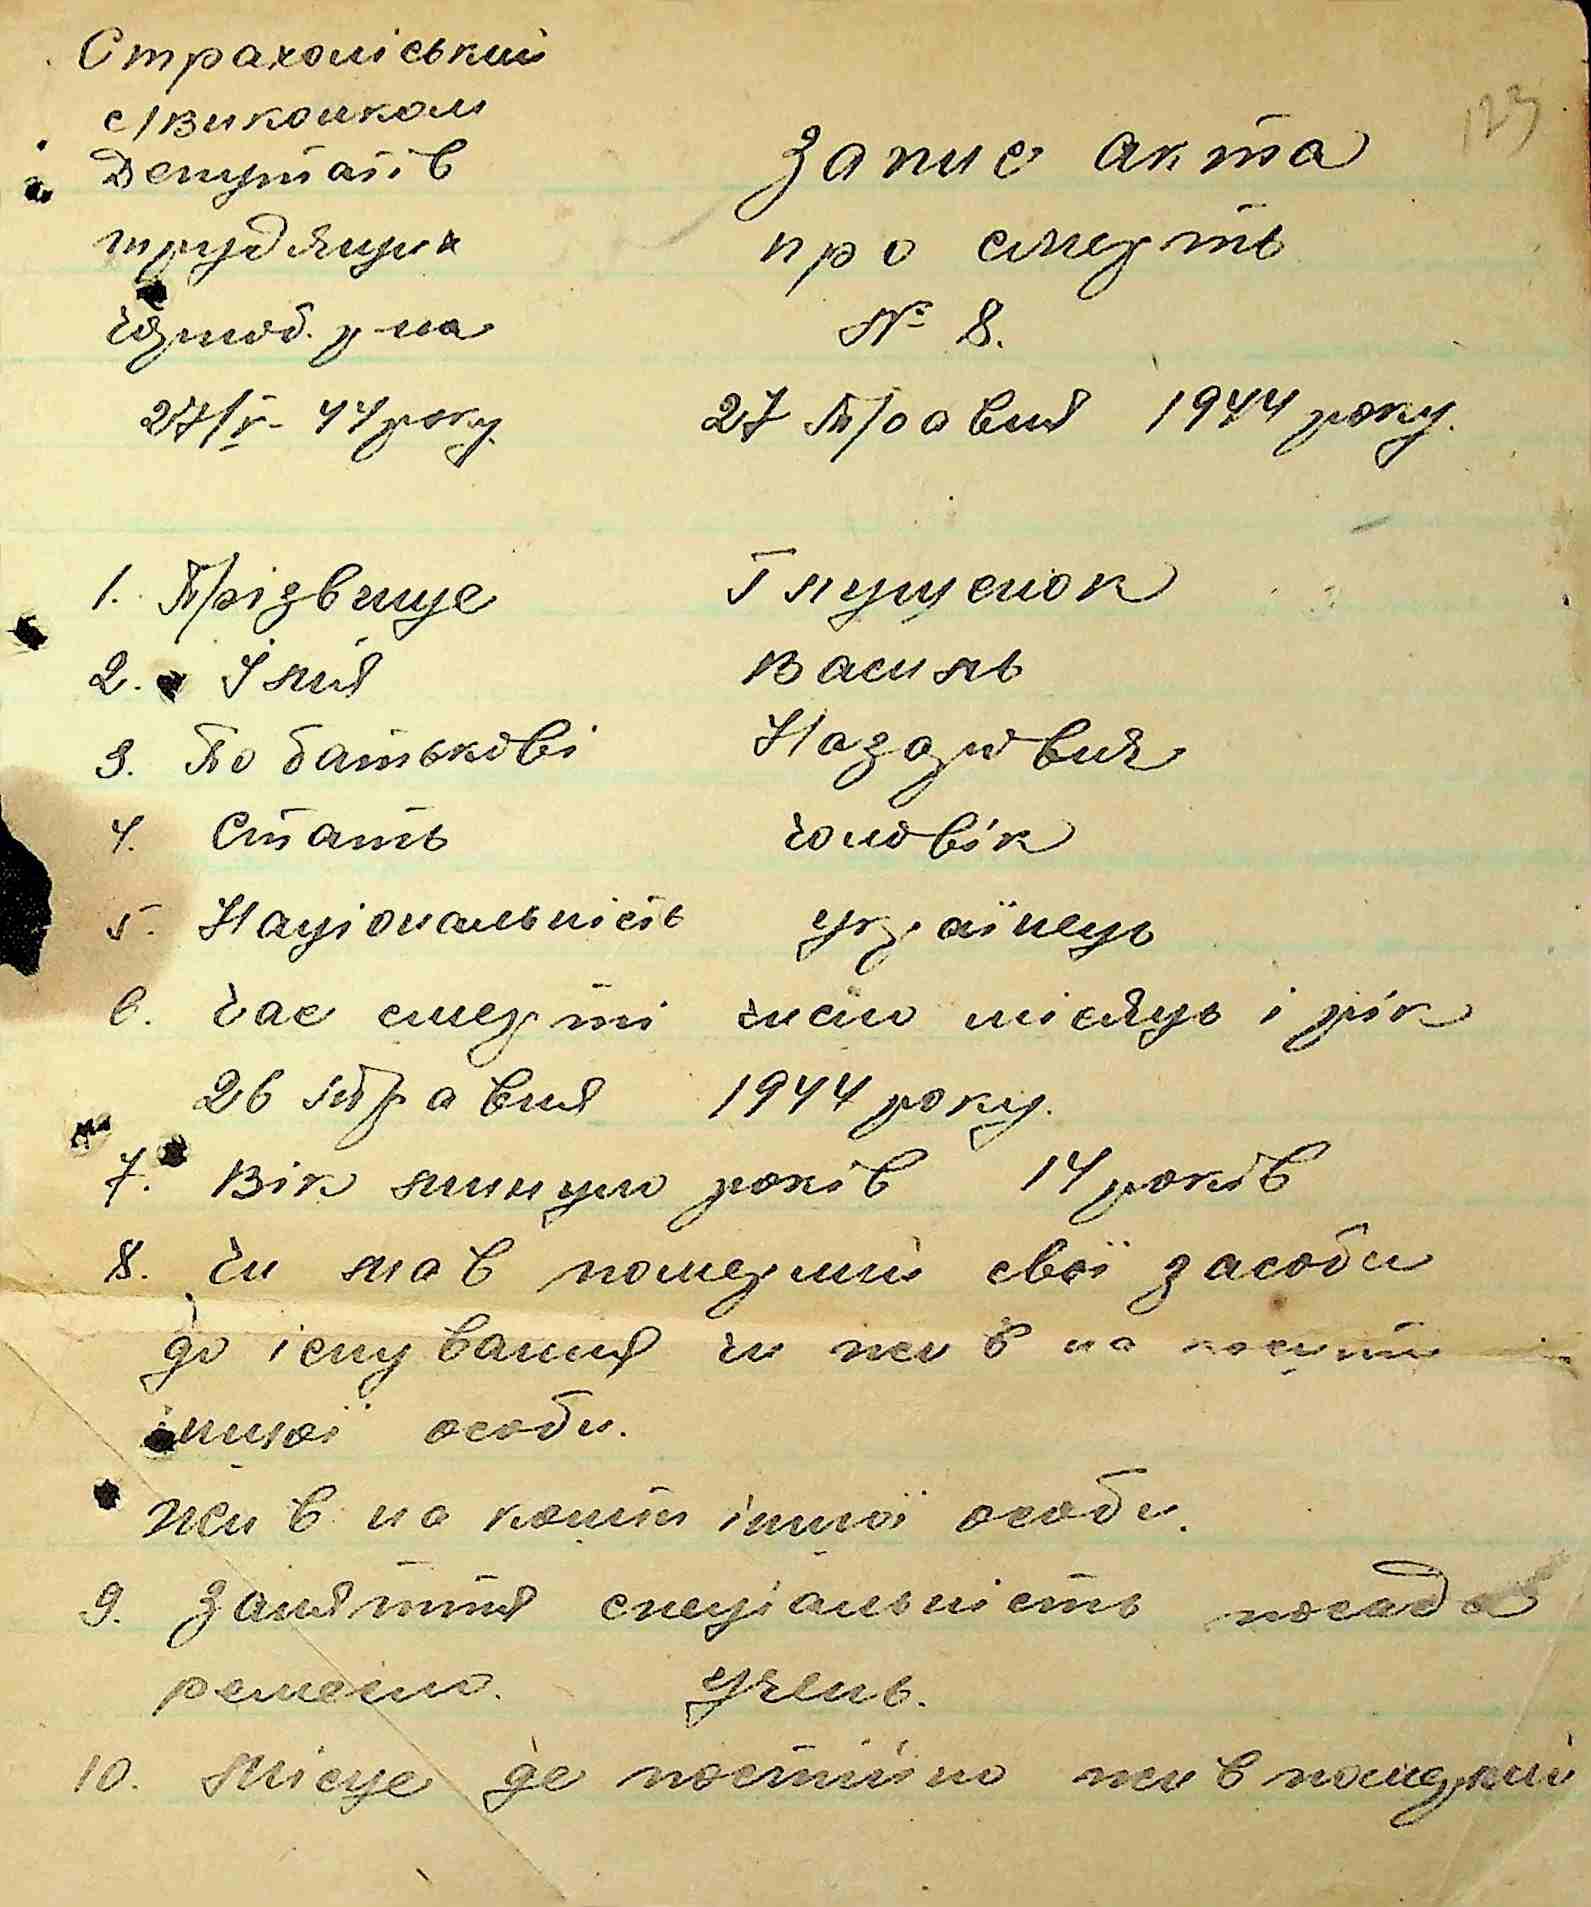 Страхоліський
с/виконком
Депутатів
трудящих
Чорноб. р-на
27/V- 44 року.
123
Запис акта
про смерть
№ 8.
27 Травня 1944 року.
1. Прізвище Глущенок
2. Імя Василь
3. По батькові Назарович
4. Стать чоловік
5. Національність українець
6. Час смерті число місяць і рік
26 Травня 1944 року.
7. Вік минуло років 14 років
8. Чи мав померший свої засоби
до існування чи жив на кошти
іншої особи.
жив на кошти іншої особи.
9. Заняття спеціальність посада
ремесло. Учень.
10. Місце де постійно жив померший